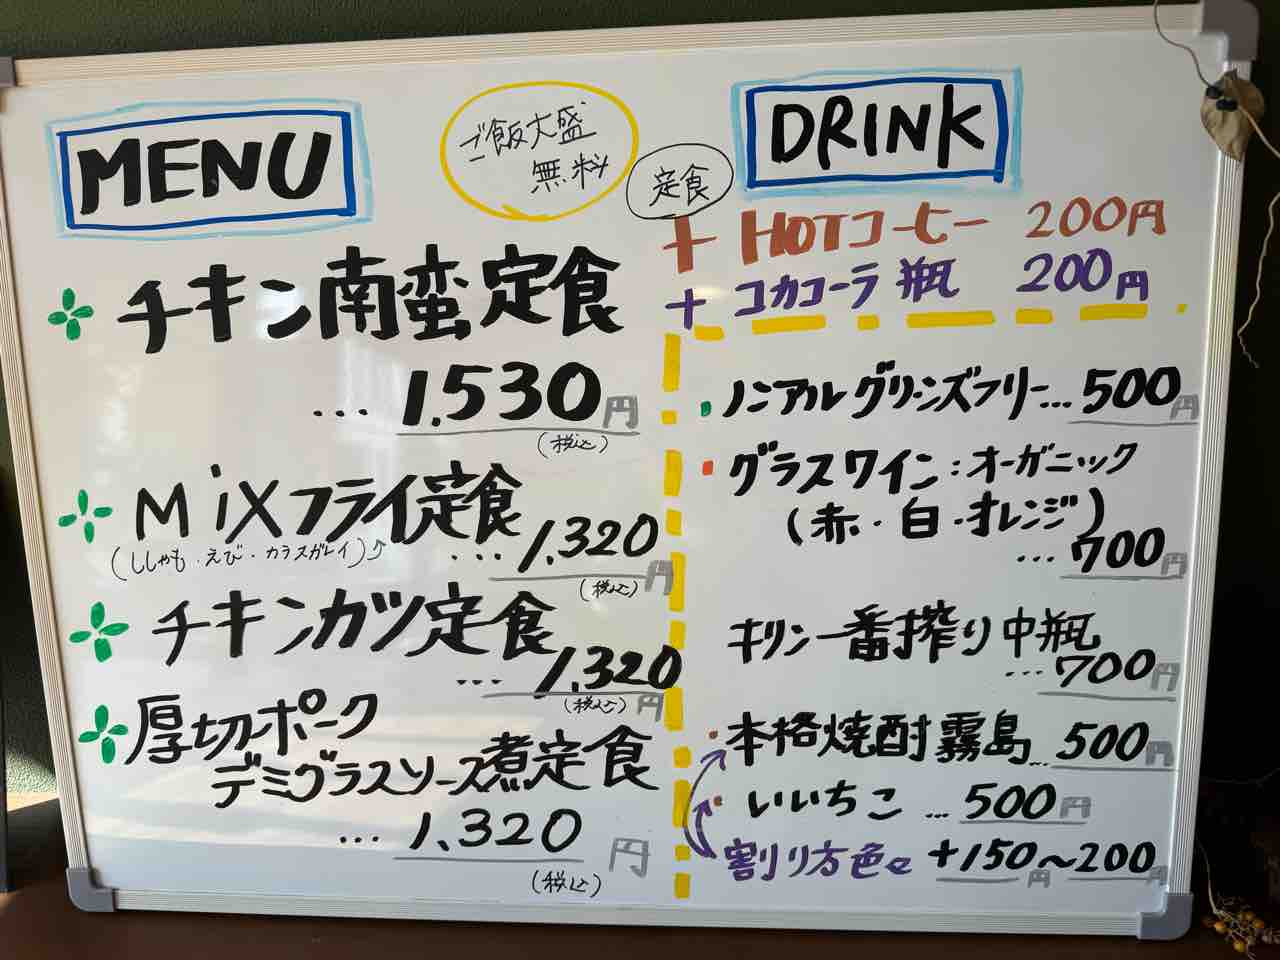 MENU
ご飯大盛
無料
チキン南蛮定食
... 1.530円
(税込)
MiXフライ定食
(ししゃも・えび・カラスガレイ)
... 1.320円
(税込)
チキンカツ定食
... 1.320円
(税込)
厚切ポーク
デミグラスソース煮定食
... 1.320円
(税込)
DRINK
定食
+ HOTコーヒー 200円
+ コカコーラ 瓶 200円
・ノンアルグリーンズフリー...500円
・グラスワイン:オーガニック
(赤・白・オレンジ)
... 700円
キリン一番搾り中瓶
... 700円
・本格焼酎霧島... 500円
・いいちこ ... 500円
割り方色々 +150円~200円